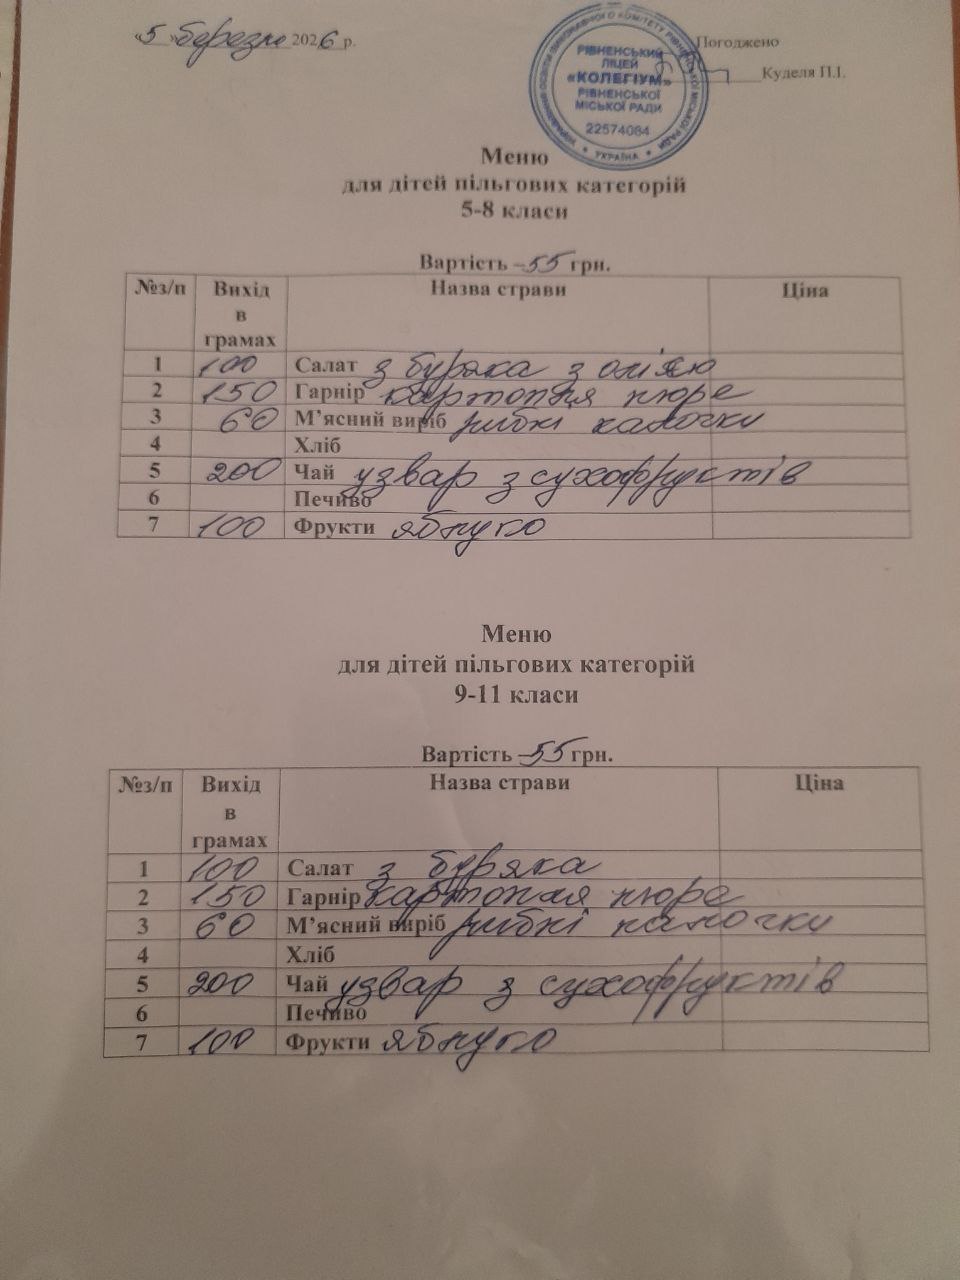 «5 »березня 2026 р.
Погоджено
Куделя П.І.
УПРАВЛІННЯ ОСВІТИ ВИКОНАВЧОГО КОМІТЕТУ РІВНЕНСЬКОЇ МІСЬКОЇ РАДИ
РІВНЕНСЬКИЙ
ЛІЦЕЙ
«КОЛЕГІУМ»
РІВНЕНСЬКОЇ
МІСЬКОЇ РАДИ
22574084
* УКРАЇНА *
Меню
для дітей пільгових категорій
5-8 класи
Вартість –55 грн.
№з/п Вихід в грамах Назва страви Ціна
1 100 Салат з буряка з олією
2 150 Гарнір картопля пюре
3 60 М’ясний виріб рибні палочки
4 Хліб
5 200 Чай узвар з сухофруктів
6 Печиво
7 100 Фрукти яблуко
Меню
для дітей пільгових категорій
9-11 класи
Вартість –55 грн.
№з/п Вихід в грамах Назва страви Ціна
1 100 Салат з буряка
2 150 Гарнір картопля пюре
3 60 М’ясний виріб рибні палочки
4 Хліб
5 200 Чай узвар з сухофруктів
6 Печиво
7 100 Фрукти яблуко